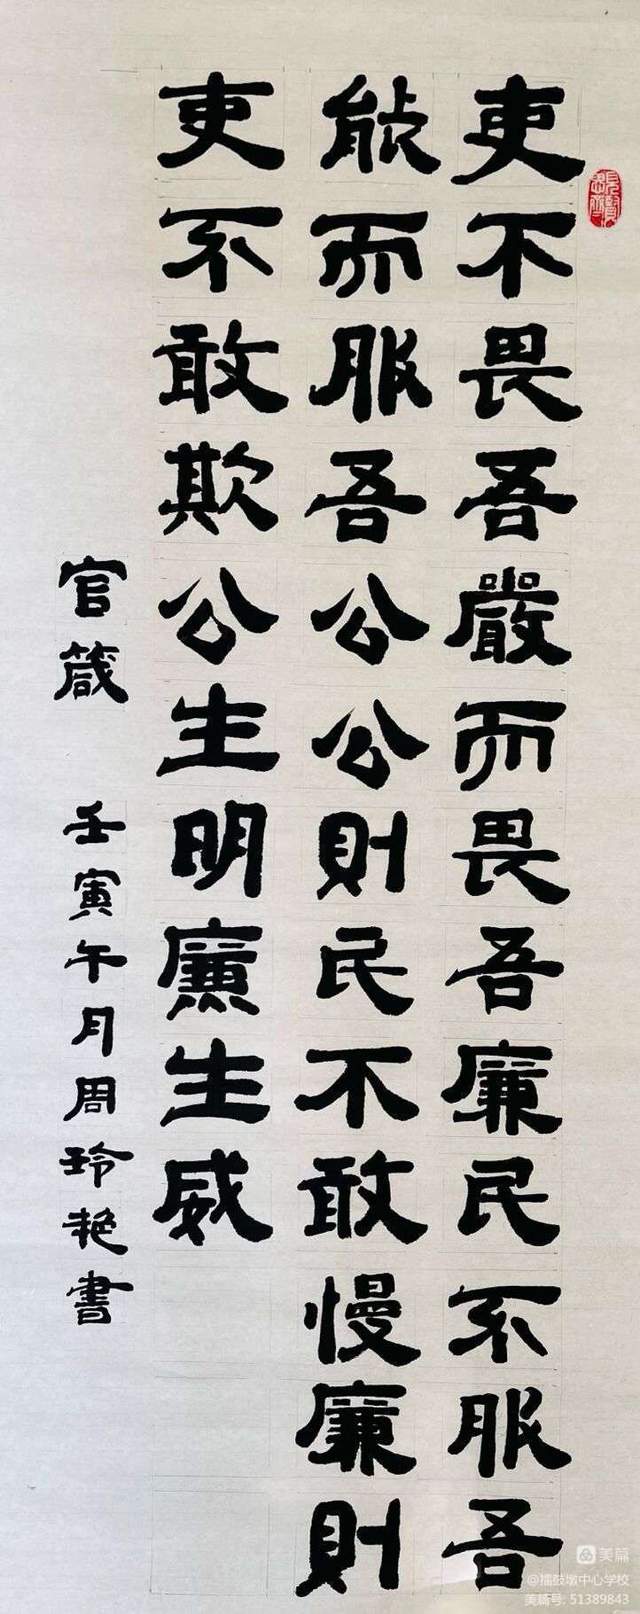 吏不畏吾嚴而畏吾廉民不服吾
能而服吾公公則民不敢慢廉則
吏不敢欺公生明廉生威
官箴 壬寅午月周玲艳書
見賢思齊
美篇
@擂鼓墩中心学校
美篇号: 51389843